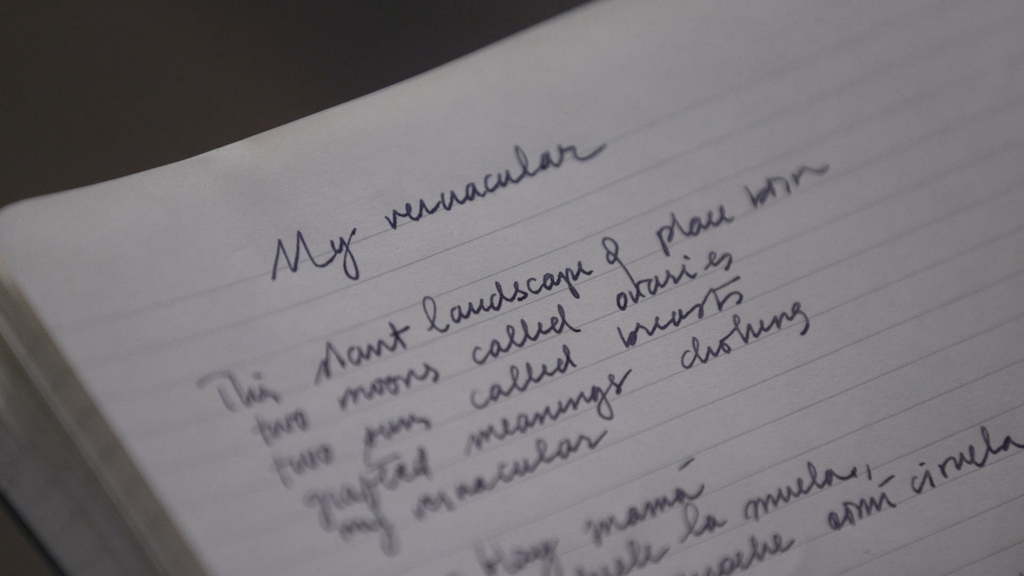 My vernacular
This slant landscape & place born
two moons called ovaries
two suns called breasts
grafted meanings choking
my vernacular
mamá
la muela,
comí ciruela